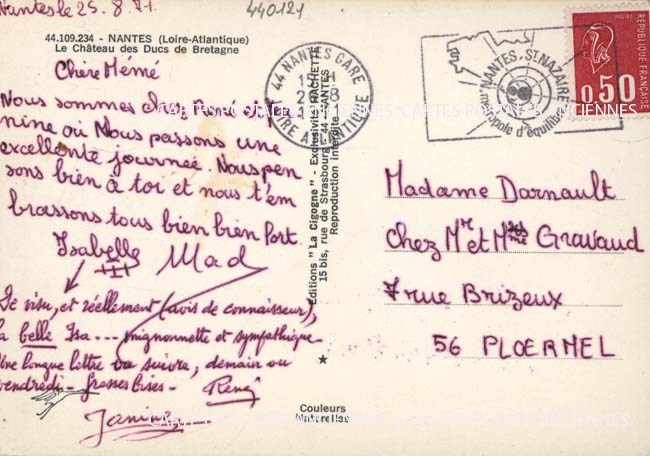 Nantes le 25.8.71.
440121
44.109.234 - NANTES (Loire-Atlantique)
Le Château des Ducs de Bretagne
Chère Mémé
Nous sommes chez
nine où Nous passons une
excellente journeé. Nous pen
sons bien à toi et nous t'em
brassons tous bien bien fort.
Isabelle Mad
De visu, et réellement (avis de connaisseur),
la belle Isa... mignonnette et sympathique
Une longue lettre va suivre, demain ou
vendredi - Grosses bises - René
Janine
Editions "La Cigogne" - Exclusivité HACHETTE
15 bis, rue de Strasbourg - 44-NANTES
Reproduction interdite
Couleurs
Naturelles
44 NANTES GARE
LOIRE ATLANTIQUE
NANTES. ST NAZAIRE
métropole d'équilibre
RÉPUBLIQUE FRANÇAISE
0,50
CARTES POSTALES ANCIENNES
Madame Darnault
Chez Mr et Mme Gravaud
7 rue Brizeux
56 PLOERMEL